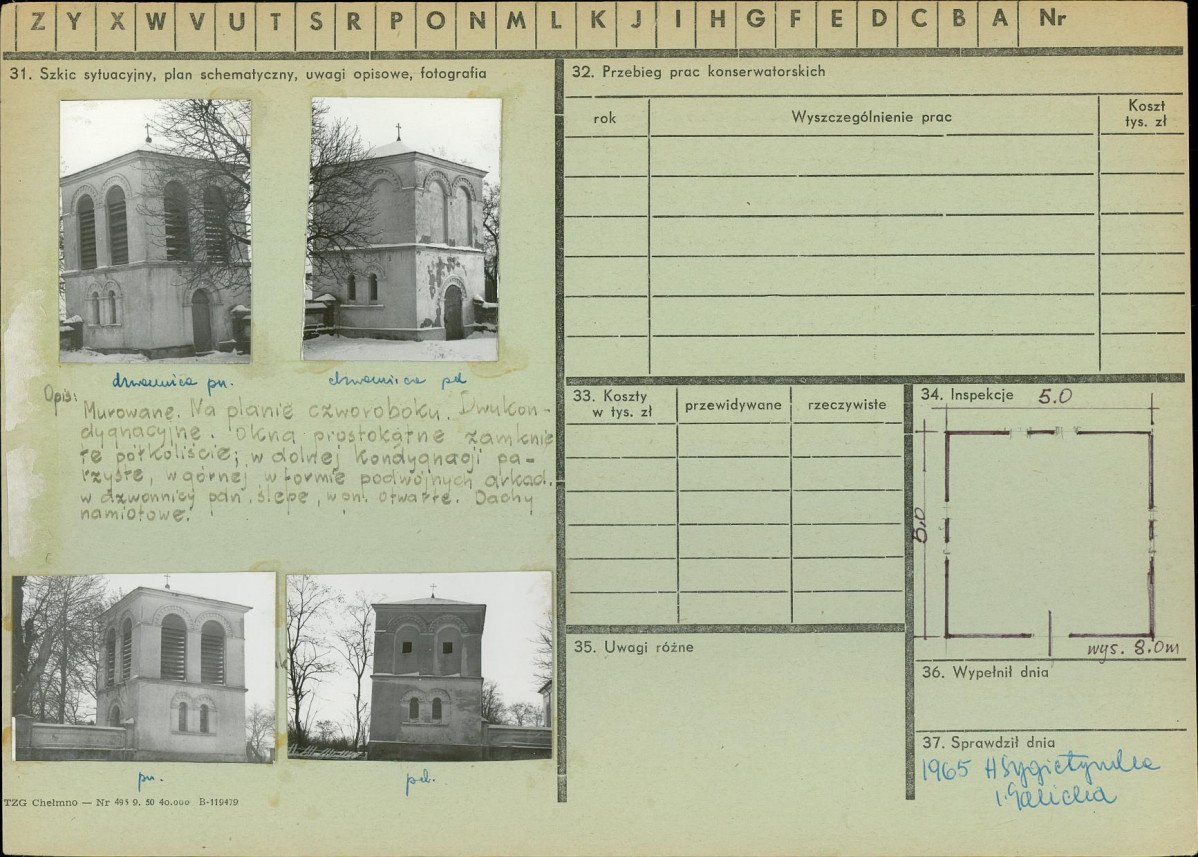 Z Y X W V U T S R P O N M L K J I H G F E D C B A Nr
31. Szkic sytuacyjny, plan schematyczny, uwagi opisowe, fotografia
dzwonnica pn.
dzwonnica pd
Opis:
Murowane. Na planie czworoboku. Dwukon-
dygnacyjne. Okna prostokątne zamknię
te półkoliście; w dolnej kondygnacji pa-
rzyste, w górnej w formie podwójnych arkad.
w dzwonnicy płn. ślepe, w pn. otwarte. Dachy
namiotowe.
pn.
pd.
TZG Chełmno — Nr 495 9. 50 40.000 B-119429
32. Przebieg prac konserwatorskich
rok
Wyszczególnienie prac
Koszt
tys. zł
33. Koszty
w tys. zł
przewidywane
rzeczywiste
34. Inspekcje
5.0
5.0
wys. 8.0m
35. Uwagi różne
36. Wypełnił dnia
37. Sprawdził dnia
1965 H Sygietyńska
I. Galicka